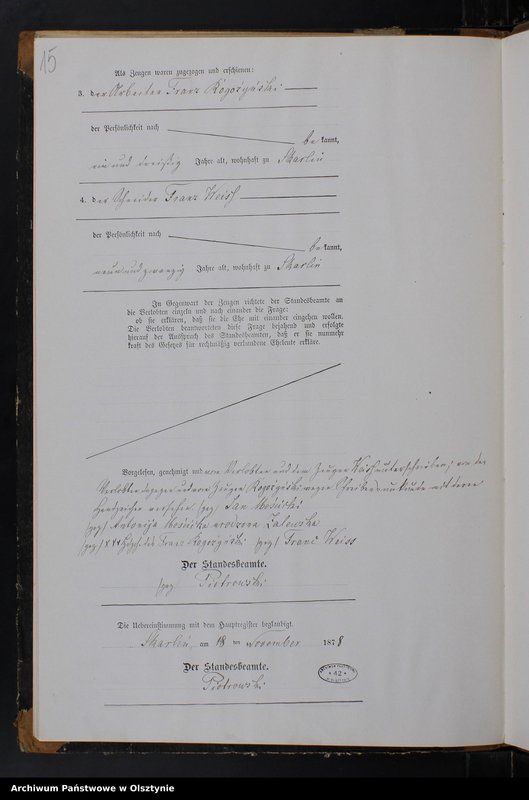 15
Als Zeugen waren zugezogen und erschienen:
3. der Arbeiter Franz Rogozynski
der Persönlichkeit nach
bekannt,
ein und dreißig Jahre alt, wohnhaft zu Skarlin
4. der Schneider Franz Weiss
der Persönlichkeit nach
bekannt,
neun und zwanzig Jahre alt, wohnhaft zu Skarlin
In Gegenwart der Zeugen richtete der Standesbeamte an
die Verlobten einzeln und nach einander die Frage:
ob sie erklären, daß sie die Ehe mit einander eingehen wollen.
Die Verlobten beantworteten diese Frage bejahend und erfolgte
hierauf der Ausspruch des Standesbeamten, daß er sie nunmehr
kraft des Gesetzes für rechtmäßig verbundene Eheleute erkläre.
Vorgelesen, genehmigt und vom Verlobten und dem Zeugen Weiss unterschrieben, von der
Verlobten dagegen und vom Zeugen Rogozynski wegen Schreibensunkunde mit ihren
Handzeichen versehen (gez) Jan
(gez) Zalewska
(gez) +++ Franz Rogozynski (gez) Franz Weiss
Der Standesbeamte.
(gez) Piotrowski
Die Uebereinstimmung mit dem Hauptregister beglaubigt.
Skarlin, am 18 ten November 1878
Der Standesbeamte.
Piotrowski
42
Archiwum Państwowe w Olsztynie